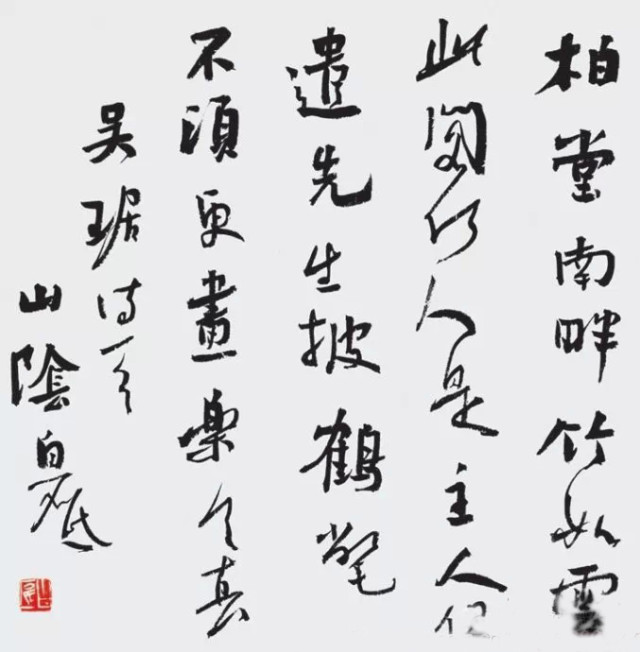 柏堂南畔竹如雲
此閣何人是主人但
遣先生披鶴氅
不須更畫樂天真
吴琚詩一首
山陰白砥